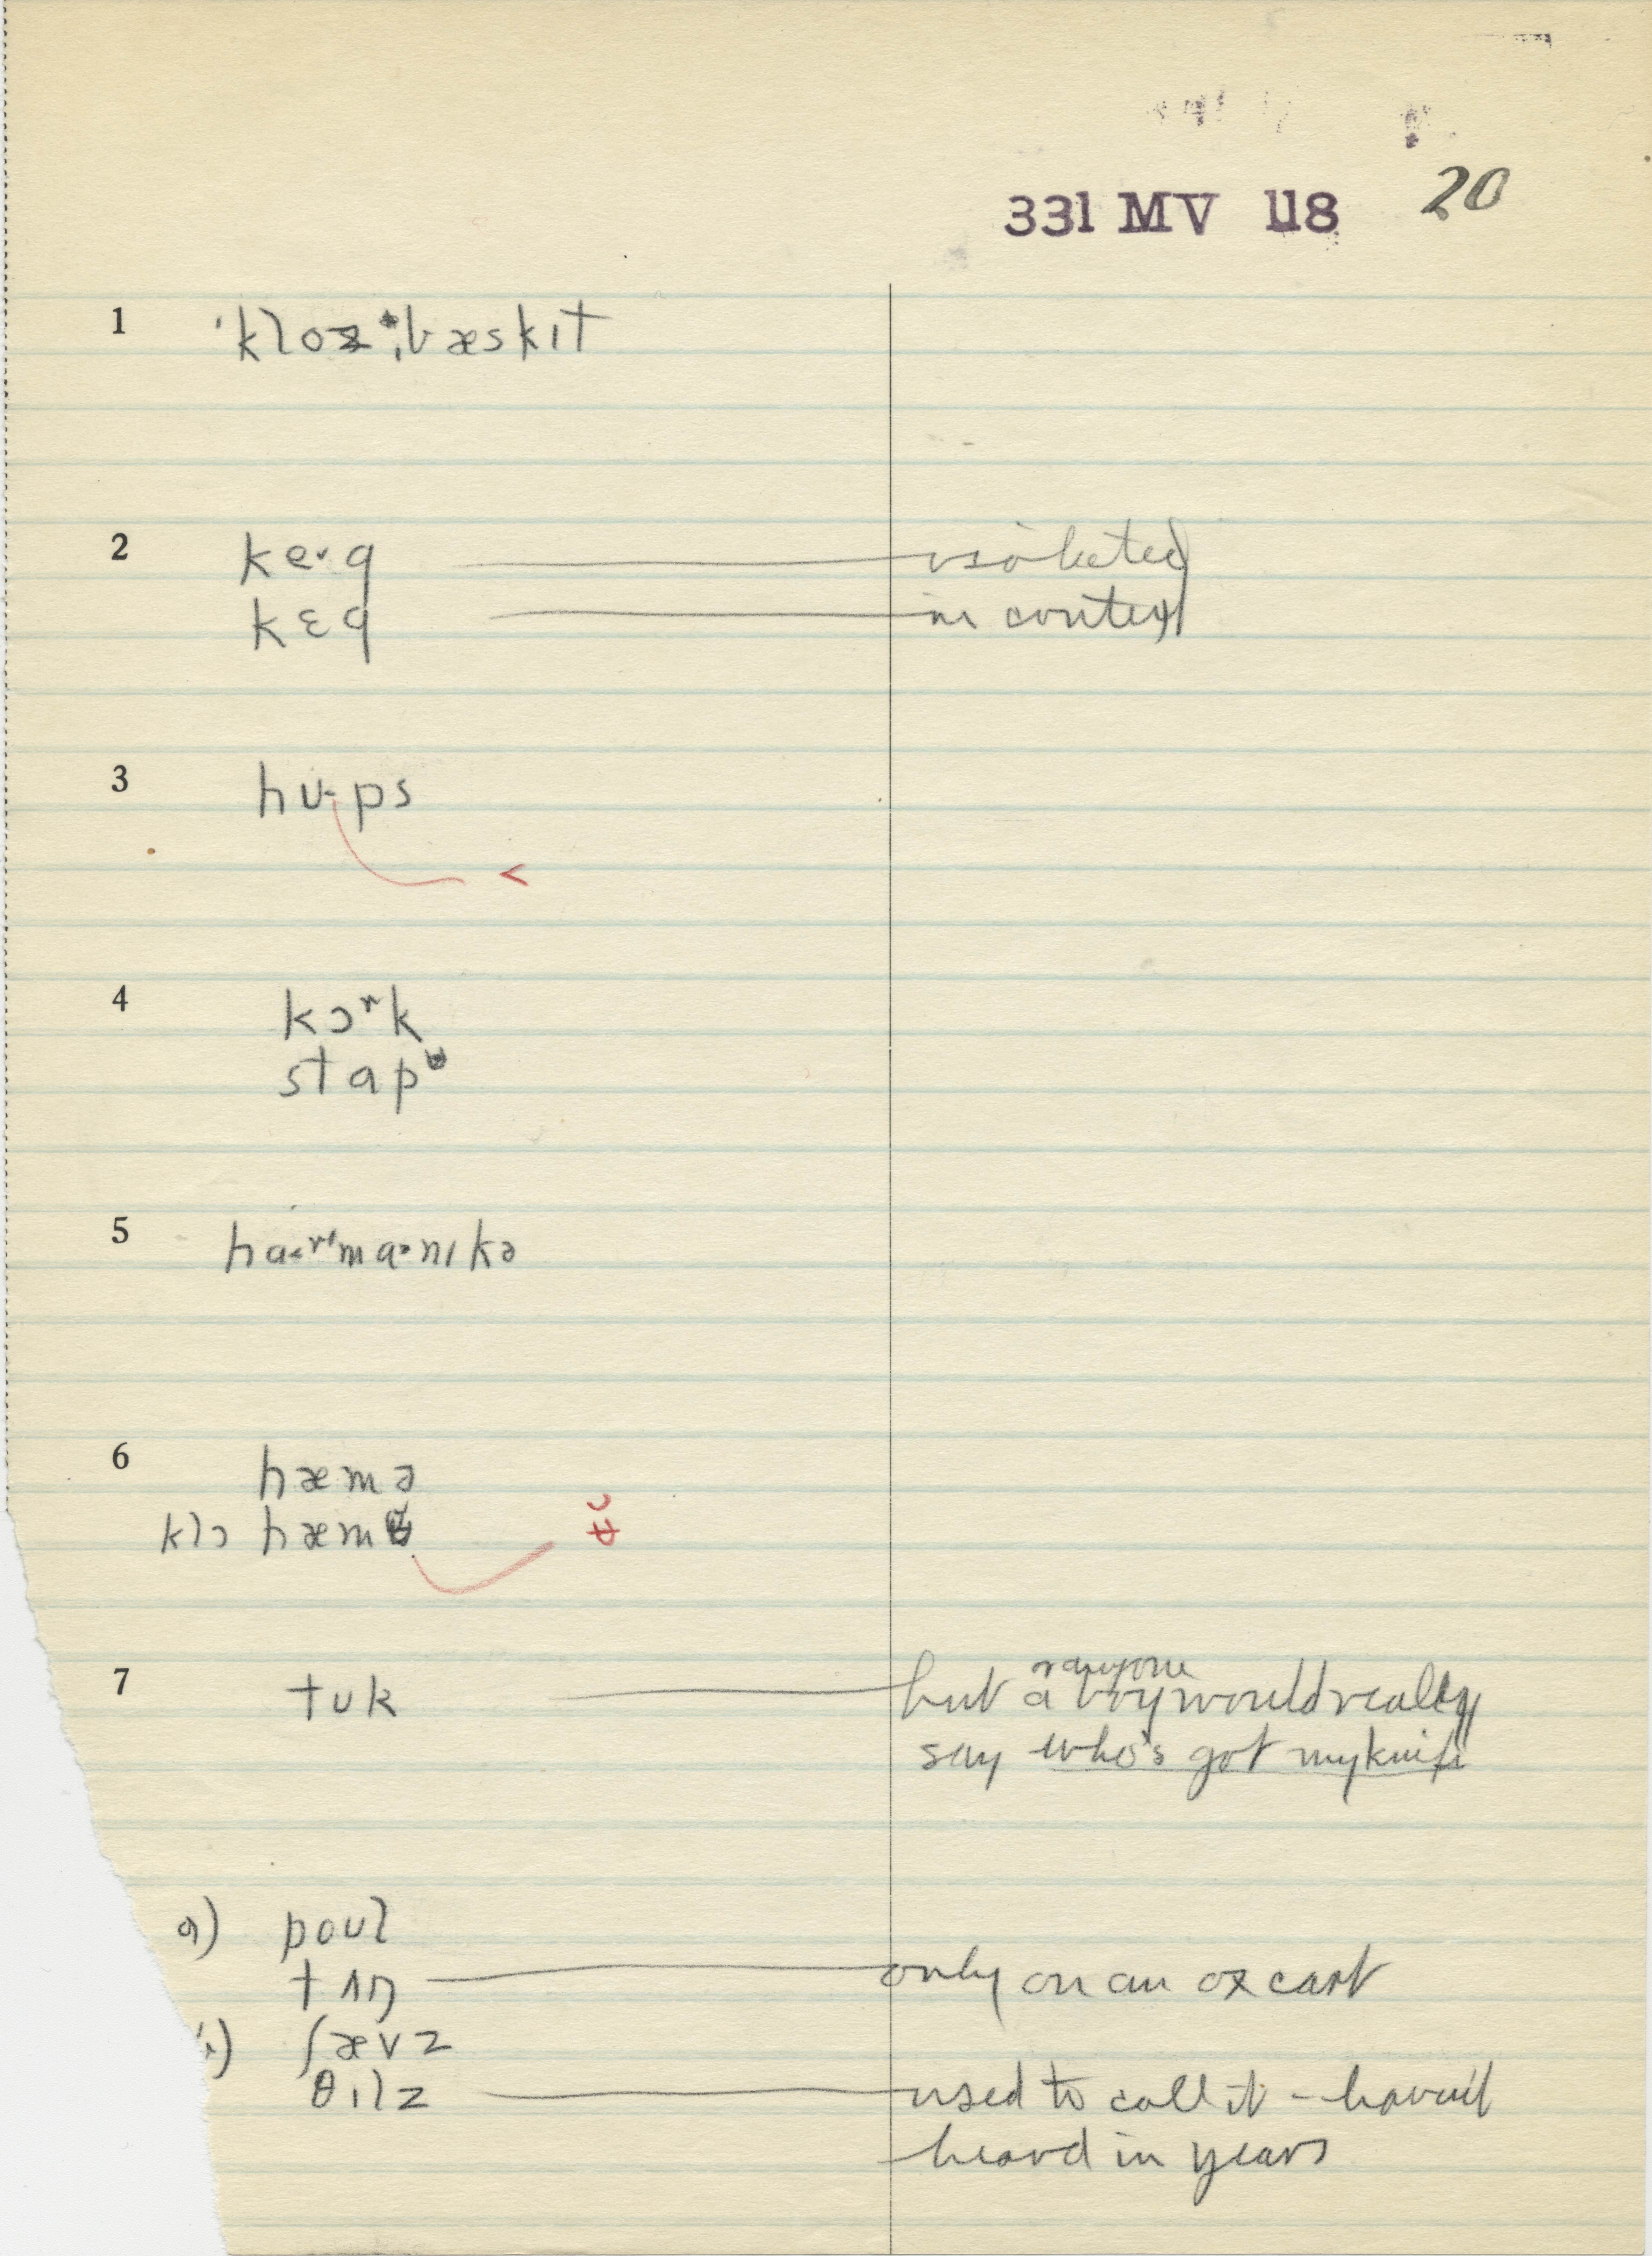 331 MV 118 20
1 ˈkloz ˌbæskɪt
2 ke·g isolated
kɛg in context
3 hu·ps
<
4 kɔʳk
stɑp
5 hɑ<ʳˈmɑ·nɪkə
6 hæmə
klɔ hæm
7 tʊk but a boy or anyone would really
say who's got my knife
a) poʊl
tʌŋ only on an ox cart
b) ʃævz
θɪlz used to call it – haven't
heard in years